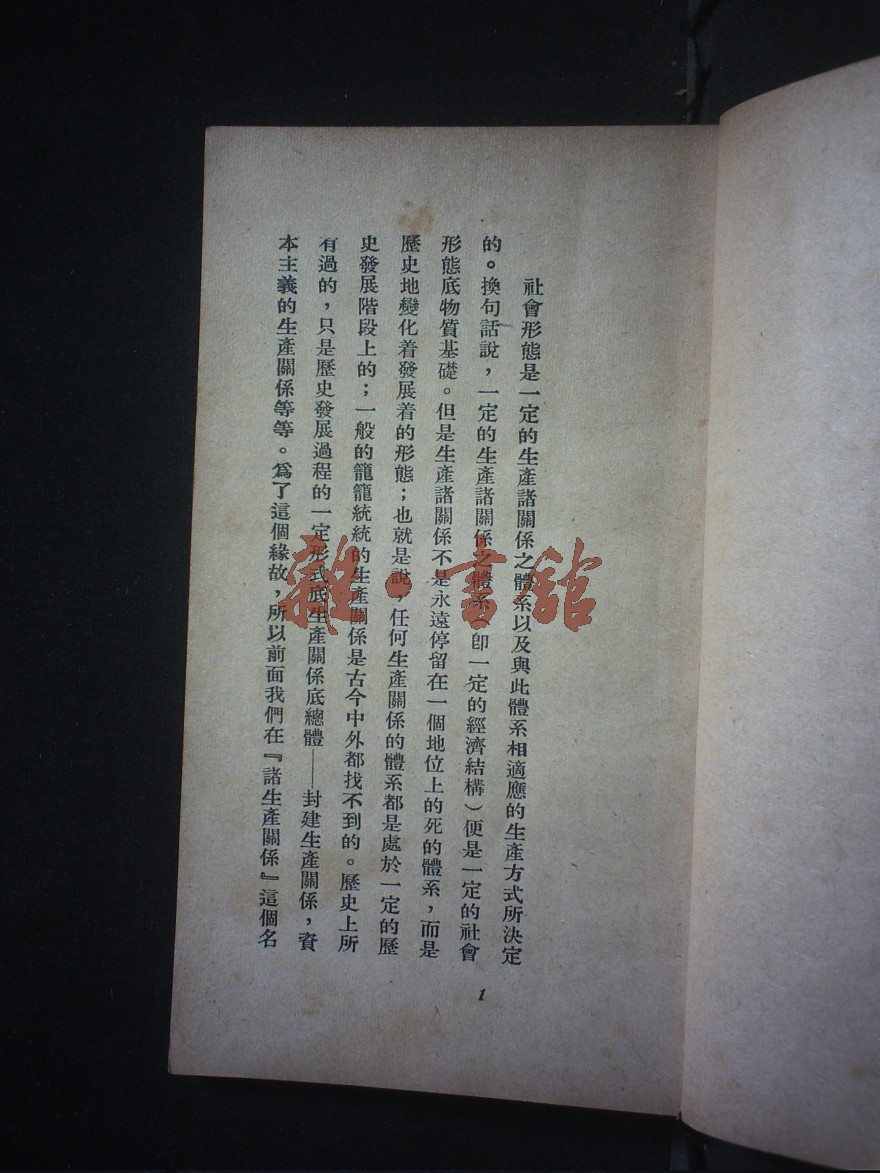 社會形態是一定的生產諸關係之體系以及與此體系相適應的生產方式所決定
的。換句話說，一定的生產諸關係之體系（卽一定的經濟結構）便是一定的社會
形態底物質基礎。但是生產諸關係不是永遠停留在一個地位上的死的體系，而是
歷史地變化着發展着的形態；也就是說，任何生產關係的體系都是處於一定的歷
史發展階段上的；一般的籠籠統統的生產關係是古今中外都找不到的。歷史上所
有過的，只是歷史發展過程的一定形式底生產關係底總體——封建生產關係，資
本主義的生產關係等等。爲了這個緣故，所以前面我們在『諸生產關係』這個名
1
雜·書館